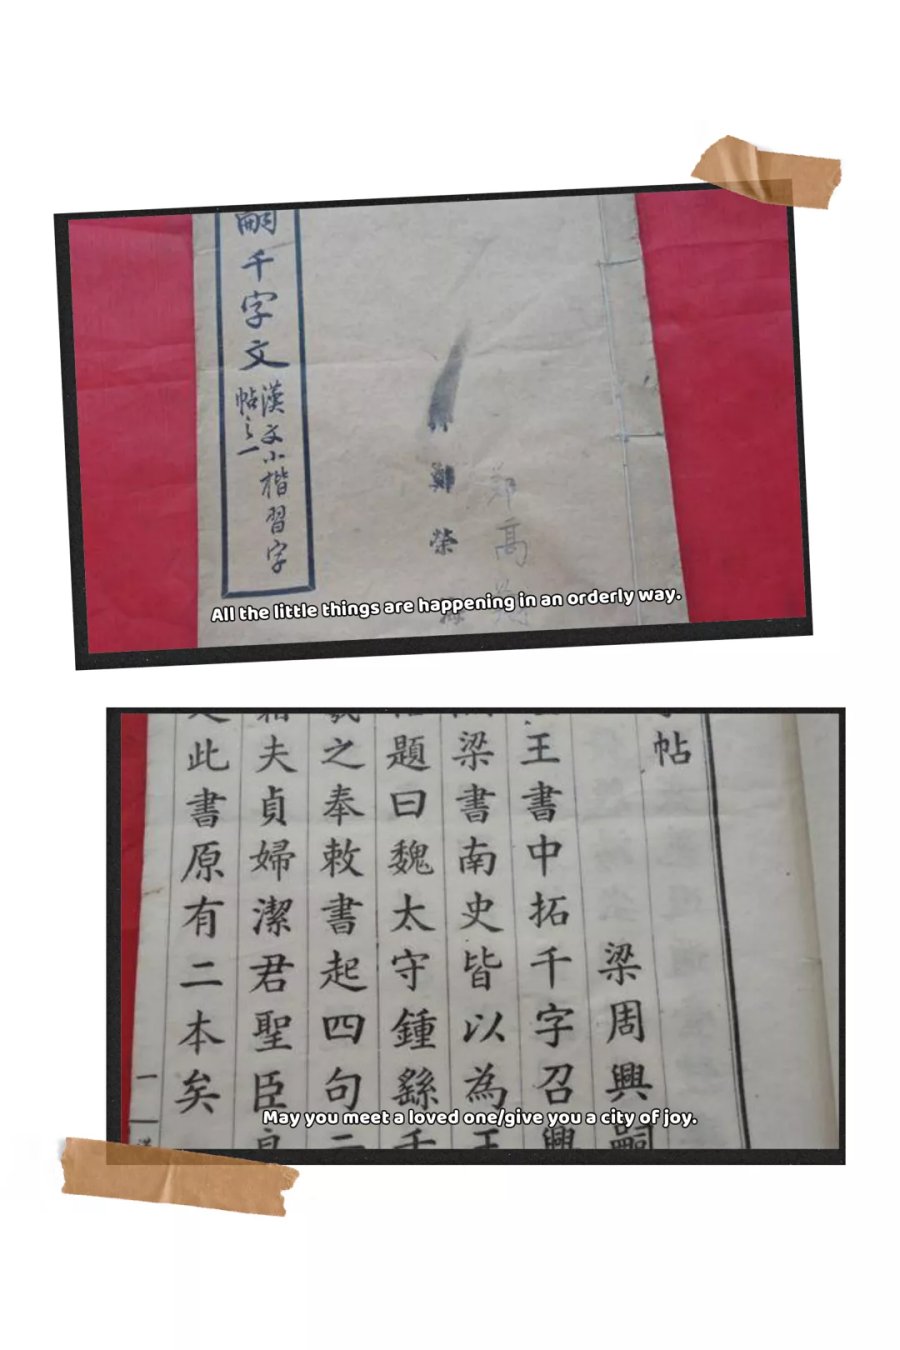 鄭高
鄭榮
嗣千字文
漢文小楷習字
帖之一
All the little things are happening in an orderly way.
帖
梁周興嗣
王書中拓千字召興
梁書南史皆以為王
題曰魏太守鍾繇千
羲之奉敕書起四句二
霜夫貞婦潔君聖臣良
此書原有二本矣
一
May you meet a loved one/give you a city of joy.